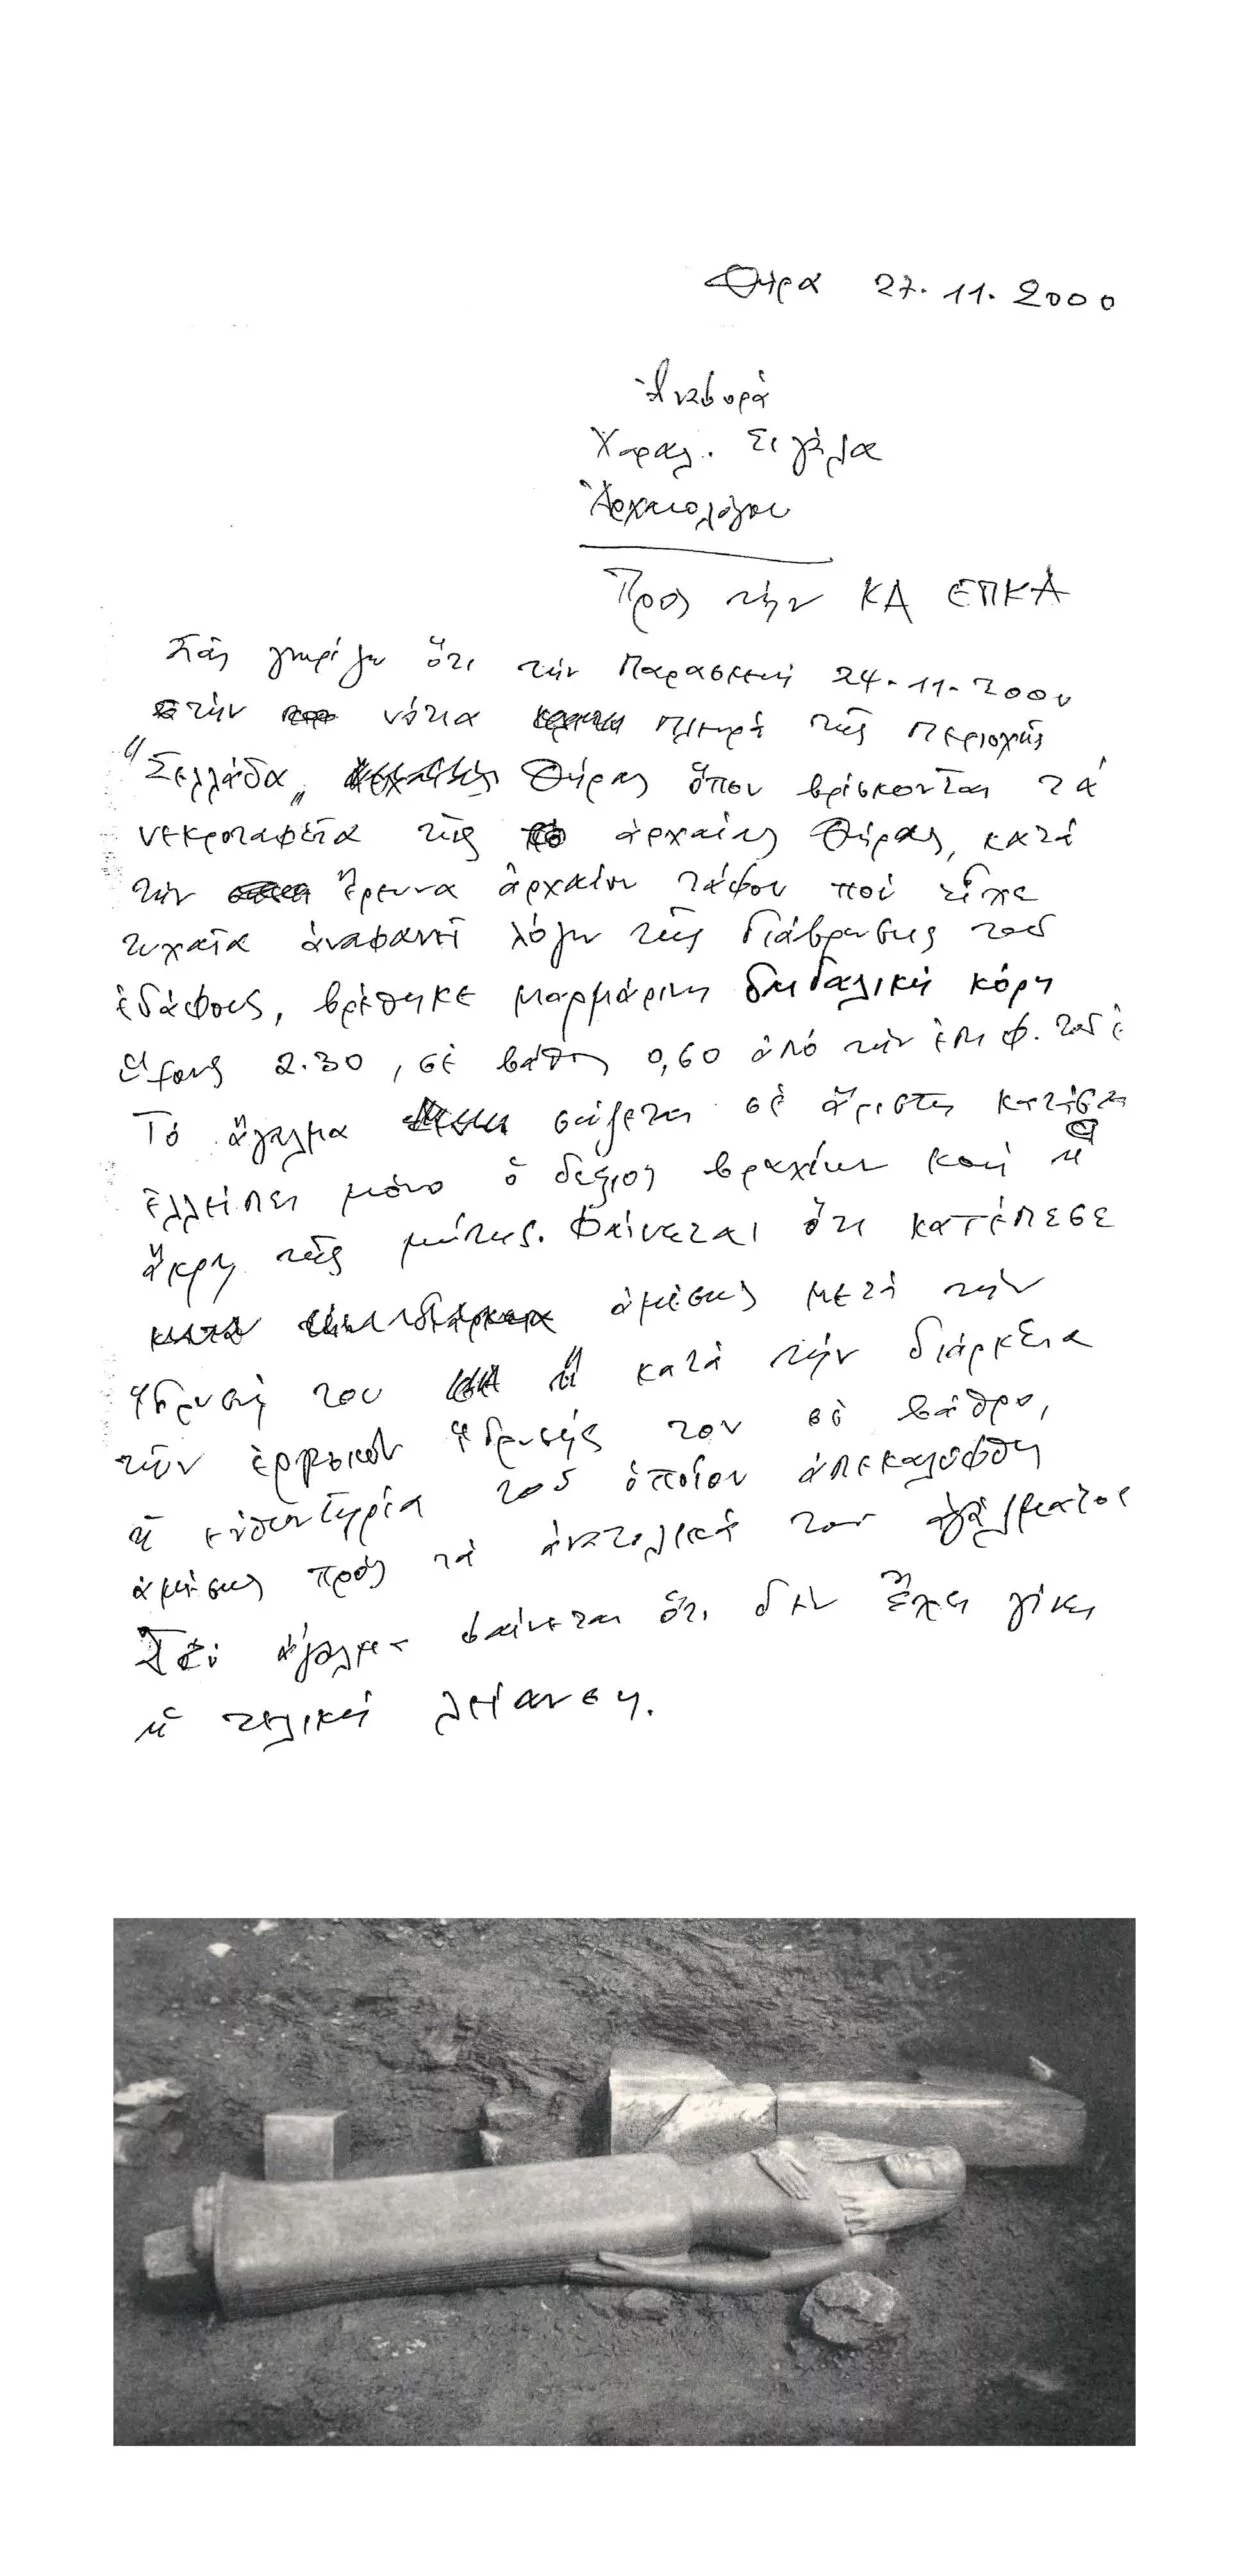 Θήρα 27.11.2000
Ἀναφορά
Χαραλ. Σιγάλα
Ἀρχαιολόγου
Πρός τήν ΚΑ ΕΠΚΑ
Σᾶς γνωρίζω ὅτι τήν Παρασκευή 24-11-2000
στήν νότια πλευρά τῆς περιοχῆς
"Σελλάδα" Θήρας ὅπου βρίσκονται τά
νεκροταφεῖα τῆς ἀρχαίας Θήρας, κατά
τήν ἔρευνα ἀρχαίου τάφου πού εἶχε
τυχαῖα ἀναφανεῖ λόγω τῆς διάβρωσης τοῦ
ἐδάφους, βρέθηκε μαρμάρινη δαιδαλική κόρη
ὕψους 2.30, σέ βάθος 0,60 ἀπό τήν ἐπιφ. τοῦ ἐ
Τό ἄγαλμα σώζεται σέ ἄριστη κατάστα
ἐλλείπει μόνο ὁ δεξιός βραχίων καί ἡ
ἄκρη τῆς μύτης. Φαίνεται ὅτι κατέπεσε
ἀμέσως μετά τήν
ἵδρυσή του ἤ κατά τήν διάρκεια
τῶν ἐργασιῶν ἵδρυσής του σέ βάθρο,
ἡ εὐθυντηρία τοῦ ὁποίου ἀπεκαλύφθη
ἀμέσως πρός τά ἀνατολικά τοῦ ἀγάλματος
Στό ἄγαλμα φαίνεται ὅτι δέν ἔχει γίνει
ἡ τελική λείανση.